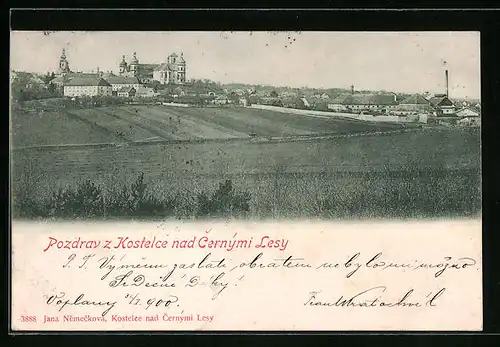 Pozdrav z Kostelce nad Černými Lesy
P. T. Výměnu zaslati obratem nebylo mi možno
Srdečné Díky!
Voplany 900.
3888 Jana Němečková, Kostelec nad Černými Lesy